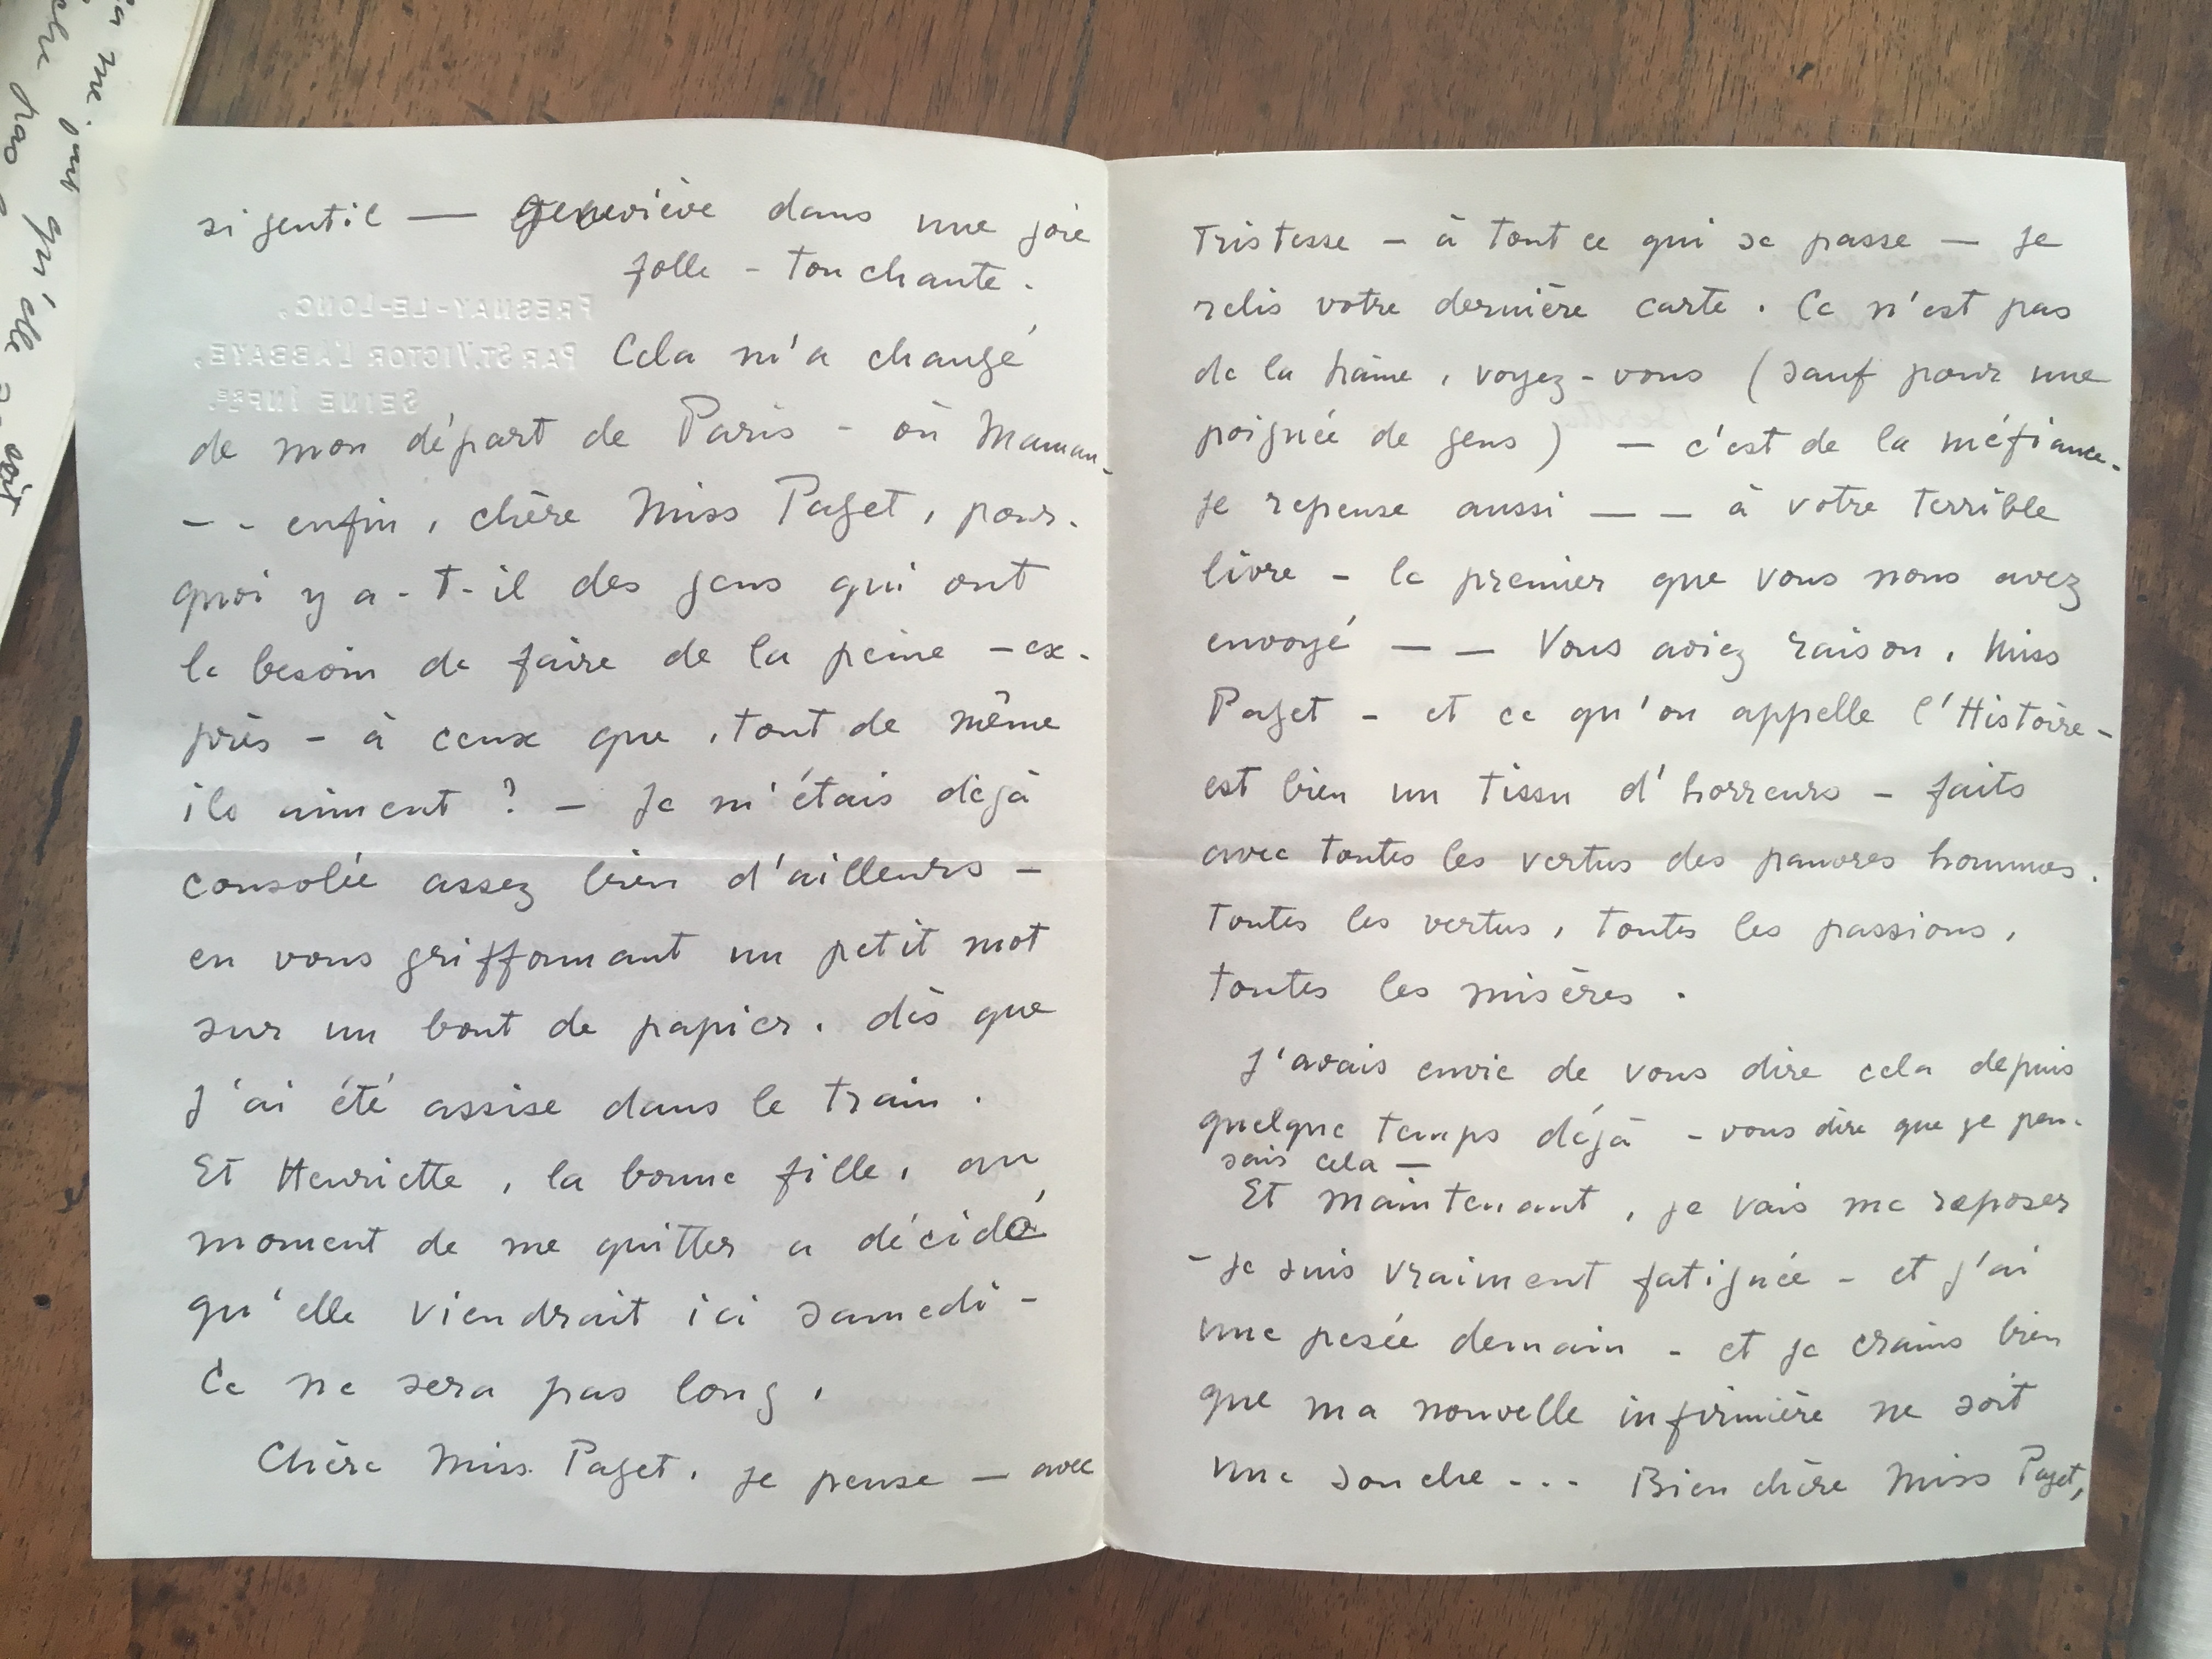 si gentil — Geneviève dans une joie
folle - touchante.
FRESNAY-LE-LONG,
PAR ST. VICTOR L'ABBAYE,
SEINE INFRE.
Cela m'a changé
de mon départ de Paris - où Maman -
- - enfin, chère Miss Paget, pour-
quoi y a-t-il des gens qui ont
le besoin de faire de la peine - ex-
près - à ceux que, tout de même
ils aiment ? - Je m'étais déjà
consolée assez bien d'ailleurs -
en vous griffonnant un petit mot
sur un bout de papier, dès que
j'ai été assise dans le train.
Et Henriette, la bonne fille, au
moment de me quitter a décidé
qu'elle viendrait ici samedi -
Ce ne sera pas long.
Chère Miss Paget, je pense — avec
Tristesse - à tout ce qui se passe — Je
relis votre dernière carte. Ce n'est pas
de la haine, voyez-vous (sauf pour une
poignée de gens) — c'est de la méfiance -
Je repense aussi — — à votre terrible
livre - le premier que vous nous avez
envoyé — — Vous aviez raison, Miss
Paget - et ce qu'on appelle l'Histoire -
est bien un tissu d'horreurs - faits
avec toutes les vertus des pauvres hommes.
Toutes les vertus, toutes les passions,
toutes les misères.
J'avais envie de vous dire cela depuis
quelque temps déjà - vous dire que je pen-
sais cela —
Et maintenant, je vais me reposer
- Je suis vraiment fatiguée - et j'ai
une pesée demain - et je crains bien
que ma nouvelle infirmière ne soit
une souche - - - Bien chère Miss Paget,
me
qu'elle
pas
soit